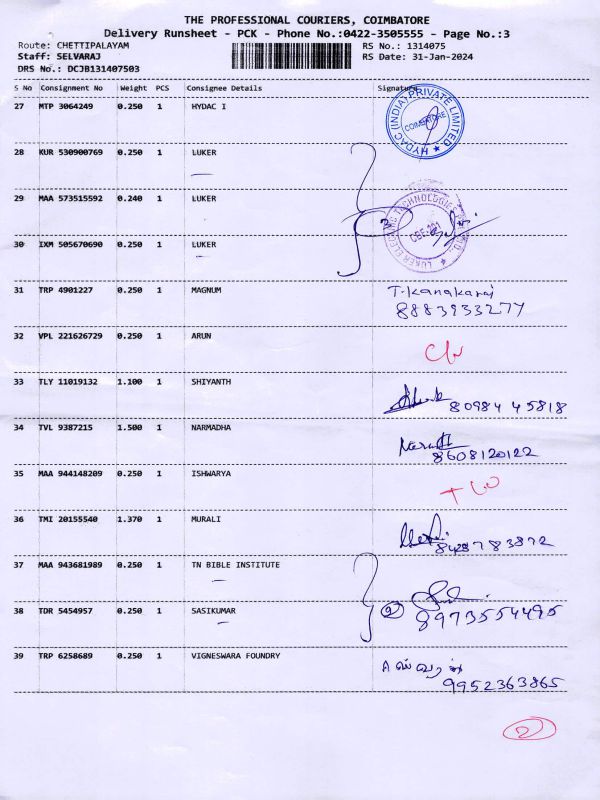 THE PROFESSIONAL COURIERS, COIMBATORE
Delivery Runsheet - PCK - Phone No.:0422-3505555 - Page No.:3
Route: CHETTIPALAYAM RS No.: 1314075
Staff: SELVARAJ RS Date: 31-Jan-2024
DRS No.: DCJB131407503
S No Consignment No Weight PCS Consignee Details Signature
27 MTP 3064249 0.250 1 HYDAC I
HYDAC (INDIA) PRIVATE LIMITED
COIMBATORE
28 KUR 530900769 0.250 1 LUKER
29 MAA 573515592 0.240 1 LUKER
LUKER ELECTRIC TECHNOLOGIES
CBE-201
30 IXM 505670690 0.250 1 LUKER
31 TRP 4901227 0.250 1 MAGNUM T.Kanakaraj
8883933277
32 VPL 221626729 0.250 1 ARUN
33 TLY 11019132 1.100 1 SHIYANTH 80984 45818
34 TVL 9387215 1.500 1 NARMADHA
8608120122
35 MAA 944148209 0.250 1 ISHWARYA
36 TMI 20155540 1.370 1 MURALI
8428783872
37 MAA 943681989 0.250 1 TN BIBLE INSTITUTE
38 TDR 5454957 0.250 1 SASIKUMAR 2 8973554495
39 TRP 6258689 0.250 1 VIGNESWARA FOUNDRY
9952363865
2